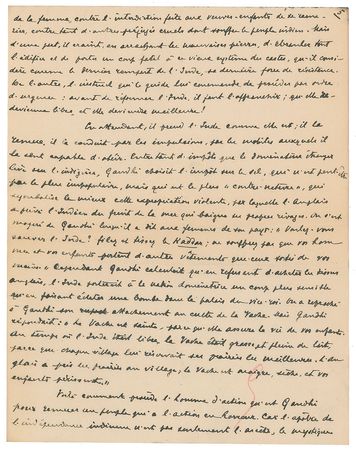 de la femme, contre l'interdiction faite aux veuves-enfants de se rema-
rier, contre tant d'autres préjugés cruels dont souffre le peuple indien. Mais
d'une part, il craint, en arrachant les mauvaises pierres, d'ébranler tout
l'édifice et de porter un coup fatal à ce vieux système des castes, qu'il consi-
dère comme le dernier rempart de l'Inde, sa dernière force de résistance.
De l'autre, l'instinct qui le guide lui commande de procéder par ordre
d'urgence : avant de réformer l'Inde, il faut l'affranchir ; qu'elle
devienne libre, et elle deviendra meilleure !
En attendant, il prend l'Inde comme elle est ; il la
remue, il la conduit par les impulsions, par les mobiles auxquels il
la sent capable d'obéir. Entre tant d'impôts que le dominateur étranger
lève sur l'indigène, Gandhi choisit l'impôt sur le sel, qui n'est peut-être
pas le plus impopulaire, mais qui est le plus « contre-nature », qui
symbolise le mieux cette expropriation violente, par laquelle l'Anglais
a privé l'Indien du fruit de la mer qui baigne ses propres rivages. On s'est
moqué de Gandhi lorsqu'il a dit aux femmes de son pays : « Voulez-vous
sauver l'Inde ? Filez et tissez le Kaddar ; ne souffrez pas que vos hom-
mes et vos enfants portent d'autres vêtements que ceux sortis de vos
mains. » Cependant Gandhi calculait qu'en refusant d'acheter les tissus
anglais, l'Inde porterait à la nation dominatrice un coup plus sensible
qu'en faisant éclater une bombe dans le palais du vice-roi. On a reproché
à Gandhi son attachement au culte de la Vache. Mais Gandhi
répondait : « La Vache est sainte, parce qu'elle assure la vie de nos enfants.
Au temps où l'Inde était libre, la Vache était grasse et pleine de lait,
parce que chaque village lui réservait ses prairies les meilleures. L'An-
glais a pris les prairies au village ; la Vache est maigre, sèche, et nos
enfants périssent. »
Voilà comment procède l'homme d'action qu'est Gandhi
pour remuer un peuple qui a l'action en horreur. Car l'apôtre de
l'indépendance indienne n'est pas seulement l'ascète, le mystique